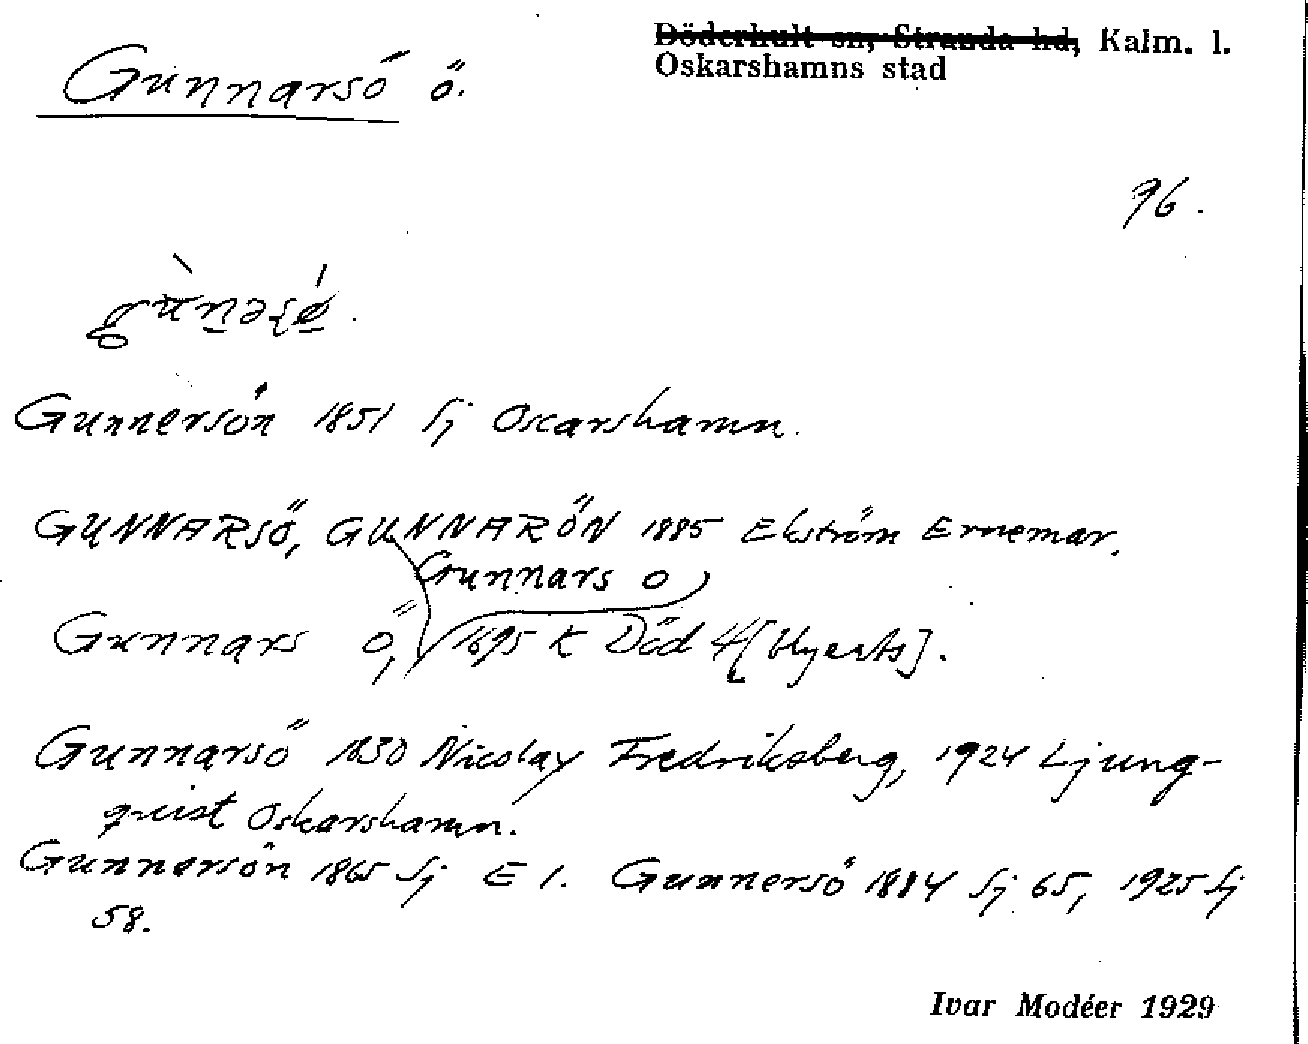 Gunnarsö ö.
Döderhult sn, Stranda hd, Kalm. l.
Oskarshamns stad
96.
Gunnersön 1851 Sj Oscarshamn.
GUNNARSÖ, GUNNARÖN 1885 Ekström Ernemar.
Gunnars o
Gunnars ö, 1895 K Död 4
Gunnarsö 1830 Nicolay Fredriksberg, 1924 Ljung-
quist Oskarshamn.
Gunnersön 1865 Sj E 1. Gunnersö 1884 Sj 65, 1925 Sj
58.
Ivar Modéer 1929